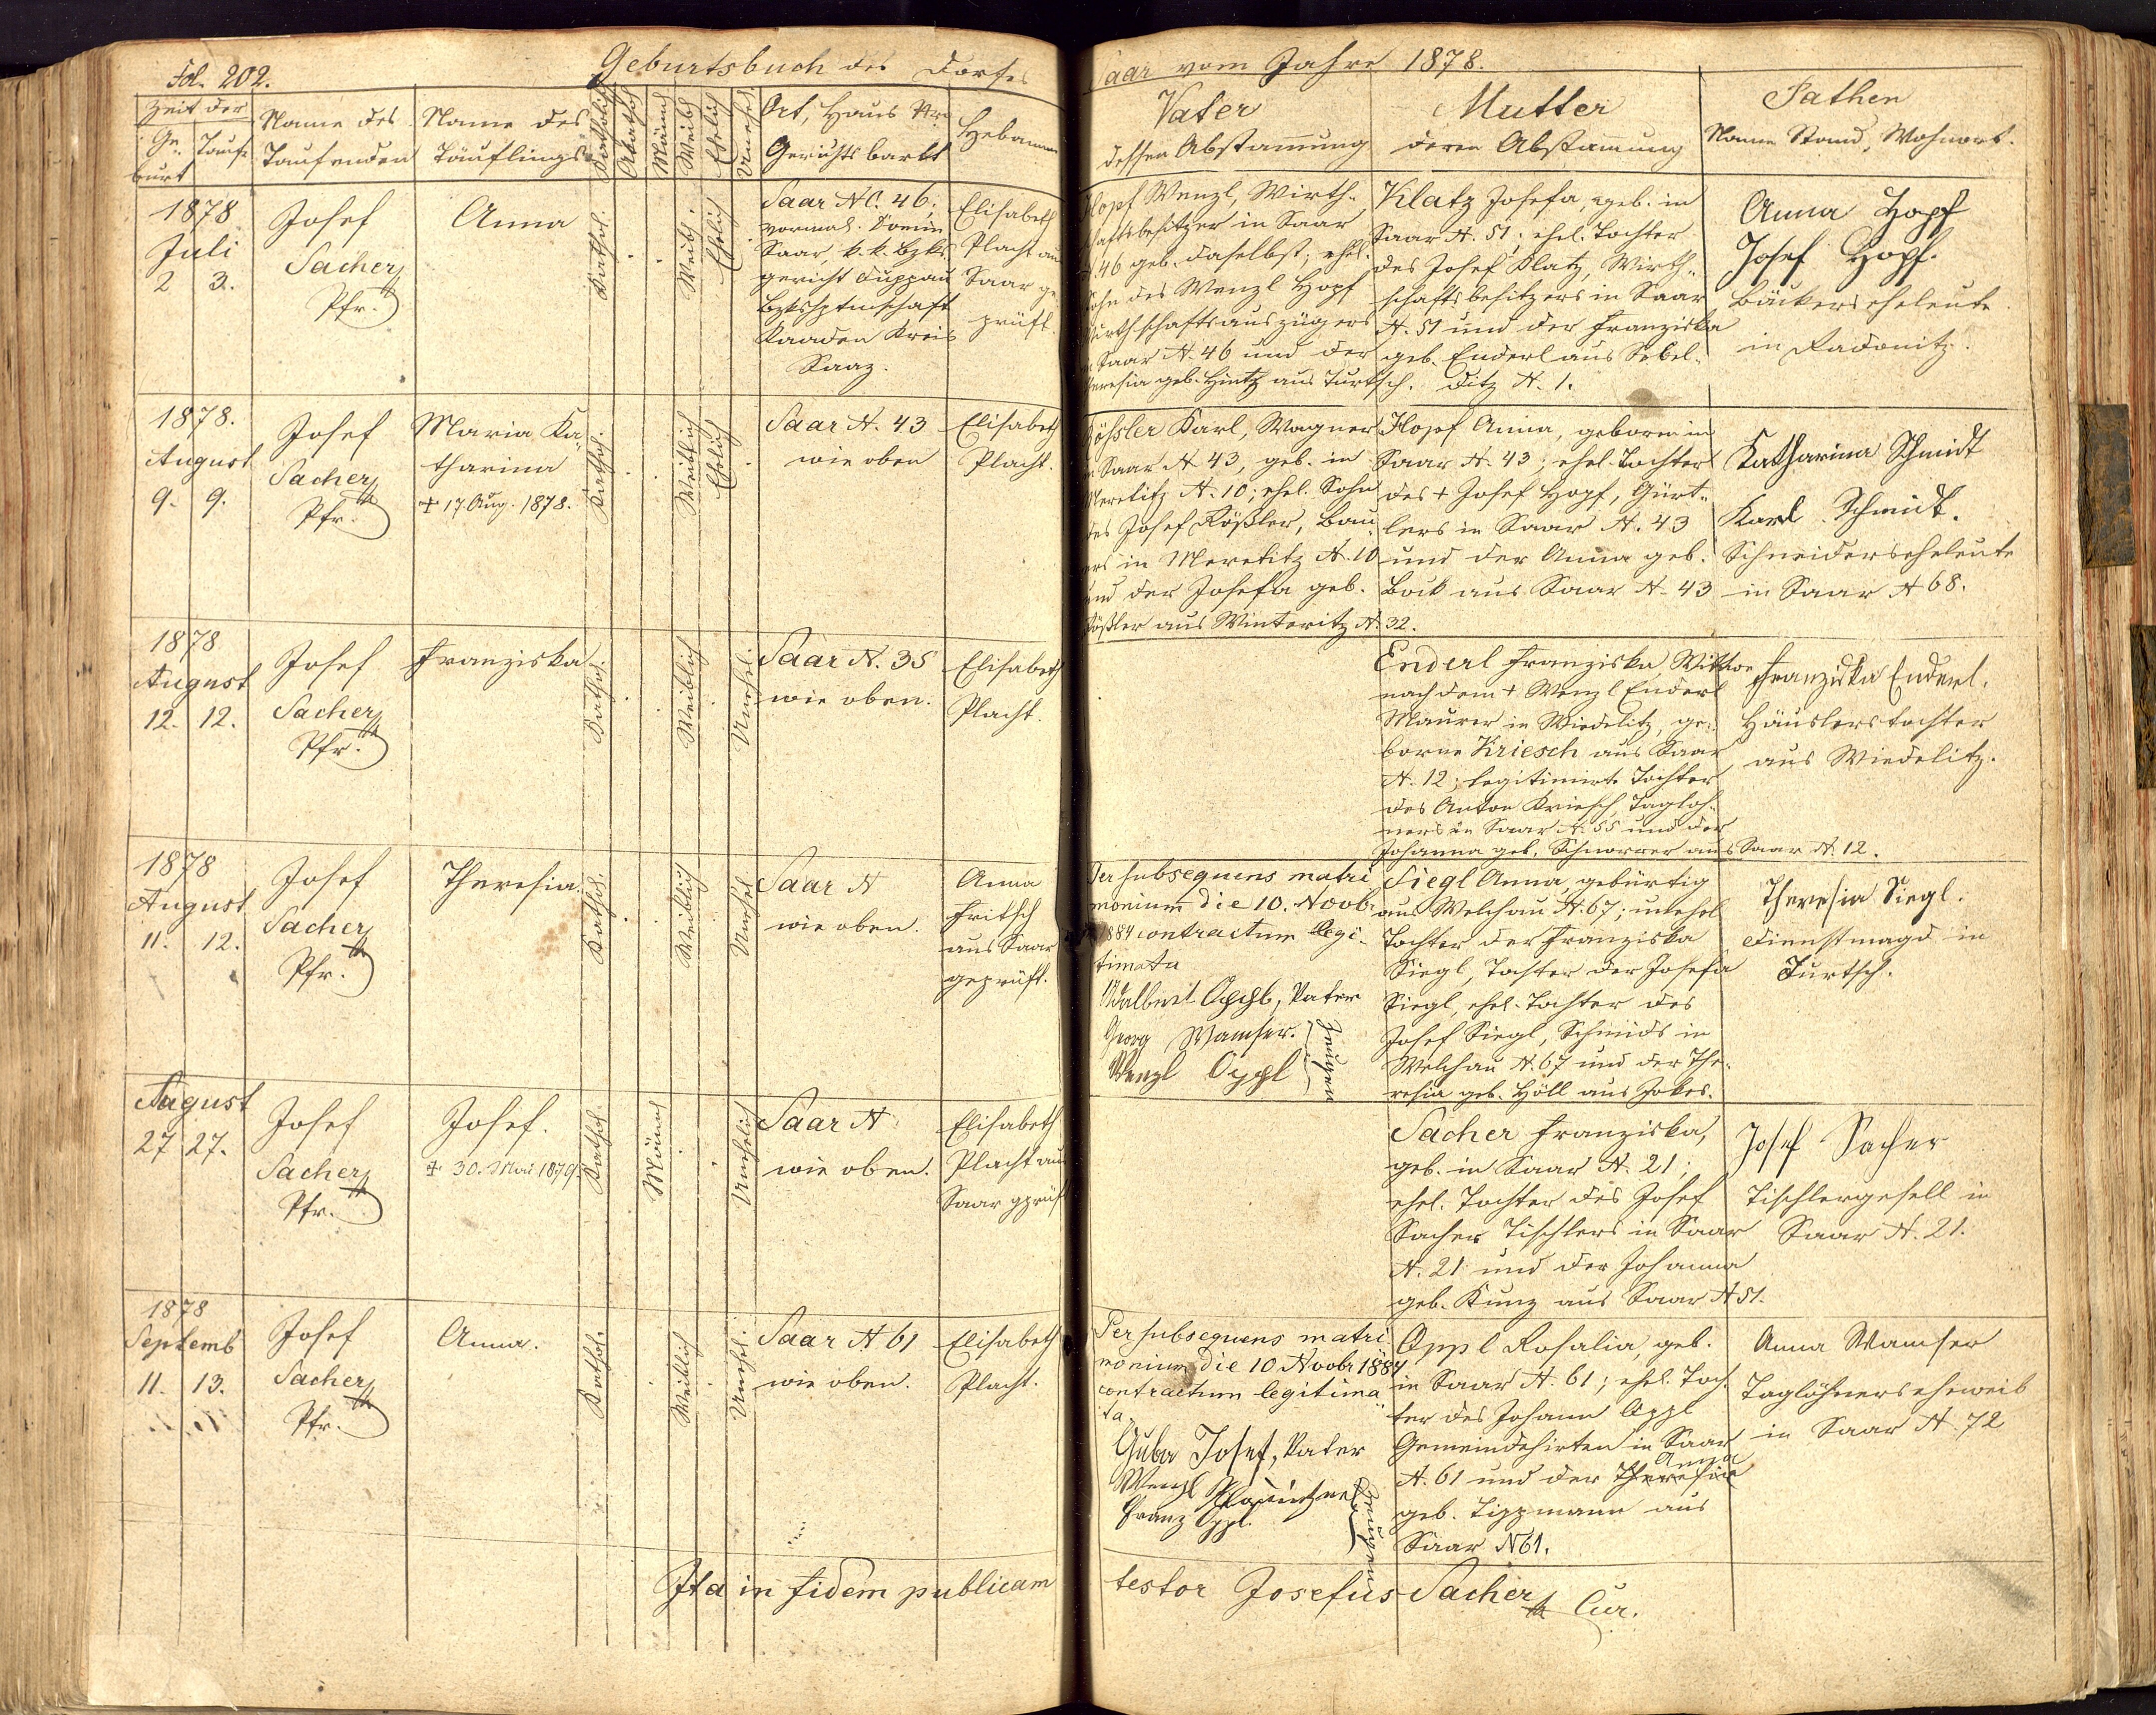 Fol. 202.
Geburtsbuch des Dorfes
Saar vom Jahre 1878.
Zeit der
Ge- Taufe
burt
Name des
Taufenden
Name des
Täuflings
Katholisch
Akathol
Männl
Weibl
Ehelich
Unehel.
Ort, Haus Nro
Gerichtsbarkt
Hebamme
Vater
dessen Abstammung
Mutter
deren Abstammung
Pathen
Name Stand, Wohnort.
1878
Juli
2 3.
Josef
Sacher
Pfr.
Anna
Kathol.
Weibl.
Ehelich
Saar NC. 46,
vormal. Domin
Saar, k. k. Bzks-
gericht Duppau
Bzkshptmschaft
Kaaden Kreis
Saaz.
Elisabeth
Placht aus
Saar ge-
prüft.
Hopf Wenzl, Wirth-
schaftsbesitzer in Saar
N. 46 geb. daselbst; ehel.
Sohn des Wenzl Hopf
Wirthschaftsauszüglers
in Saar N. 46 und der
Theresia geb. Hintz aus Turtsch.
Klatz Josefa, geb. in
Saar N. 51; ehel. Tochter
des Josef Klatz, Wirth-
schaftsbesitzers in Saar
N. 51 und der Franziska
geb. Enderl aus Sobel-
ditz N. 1.
Anna Hopf
Josef Hopf.
Bäckerseheleute
in Radonitz.
1878.
August
9. 9.
Josef
Sacher
Pfr.
Maria Ka-
tharina
+ 17. Aug. 1878.
Kathol.
Weiblich
Ehelich
Saar N. 43
wie oben
Elisabeth
Placht.
Rößler Karl, Wagner
in Saar N 43, geb. in
Meretitz N. 10; ehel. Sohn
des Josef Rößler, Bau-
ers in Meretitz N. 10
und der Josefa geb.
Rößler aus Winteritz N. 32.
Hopf Anna, geboren in
Saar N. 43; ehel. Tochter
des + Josef Hopf, Gürt-
lers in Saar N. 43
und der Anna geb.
Bock aus Saar N. 43
Katharina Schmidt
Karl Schmidt.
Schneiderseheleute
in Saar N 68.
1878
August
12. 12.
Josef
Sacher
Pfr.
Franziska
Kathol.
Weiblich
Unehel.
Saar N. 35
wie oben.
Elisabeth
Placht.
Enderl Franziska, Witwe
nach dem + Wenzl Enderl
Maurer in Wiedelitz, ge-
borne Kriesch aus Saar
N. 12; legitimirte Tochter
des Anton Kriesch, Tagloh-
ners in Saar N. 55 und der
Johanna geb. Schnorrer aus Saar N. 12.
Franziska Enderl.
Häuslerstochter
aus Wiedelitz.
1878
August
11. 12.
Josef
Sacher
Pfr.
Theresia.
Kathol.
Weiblich
Unehel.
Saar N
wie oben.
Anna
Fritsch
aus Saar
geprüft.
Per subsequens matri
monium die 10. Novbr
1884 contractum legi-
timata
Adalbert Oppl, Vater
Georg Wamser.
Wenzl Oppl
Zeugen
Siegl Anna, gebürtig
aus Welchau N. 67; unehel
Tochter der Franziska
Siegl, Tochter der Josefa
Siegl, ehel. Tochter des
Josef Siegl, Schmids in
Welchau N. 67 und der The-
resia geb. Höll aus Jokes.
Theresia Siegl.
Dienstmagd in
Turtsch.
August
27 27.
Josef
Sacher
Pfr.
Josef.
+ 30. Mai 1879.
Kathol.
Männl
Unehelich
Saar N
wie oben.
Elisabeth
Placht aus
Saar gprüft
Sacher Franziska,
geb. in Saar N. 21;
ehel. Tochter des Josef
Sacher Tischlers in Saar
N. 21 und der Johanna
geb. Kunz aus Saar N 51.
Josef Sacher
Tischlergesell in
Saar N. 21.
1878
Septemb
11. 13.
Josef
Sacher
Pfr.
Anna.
Kathol.
Weiblich
Unehel.
Saar N 61
wie oben.
Elisabeth
Placht.
Per subsequens matri
monium die 10 Novbr 1884
contractum legitima
ta.
Guba Josef, Vater
Wenzl
Franz Oppl.
Zeugen
Oppl Rosalia, geb.
in Saar N. 61; ehel. Toch-
ter des Johann Oppl
Gemeindehirten in Saar
Anna
N. 61 und der Theresia
geb. Lippmann aus
Saar N 61.
Anna Wamser
Taglöhnerseheweib
in Saar N. 72
Ita in fidem publicam
testor Josefus Sacher Cur.